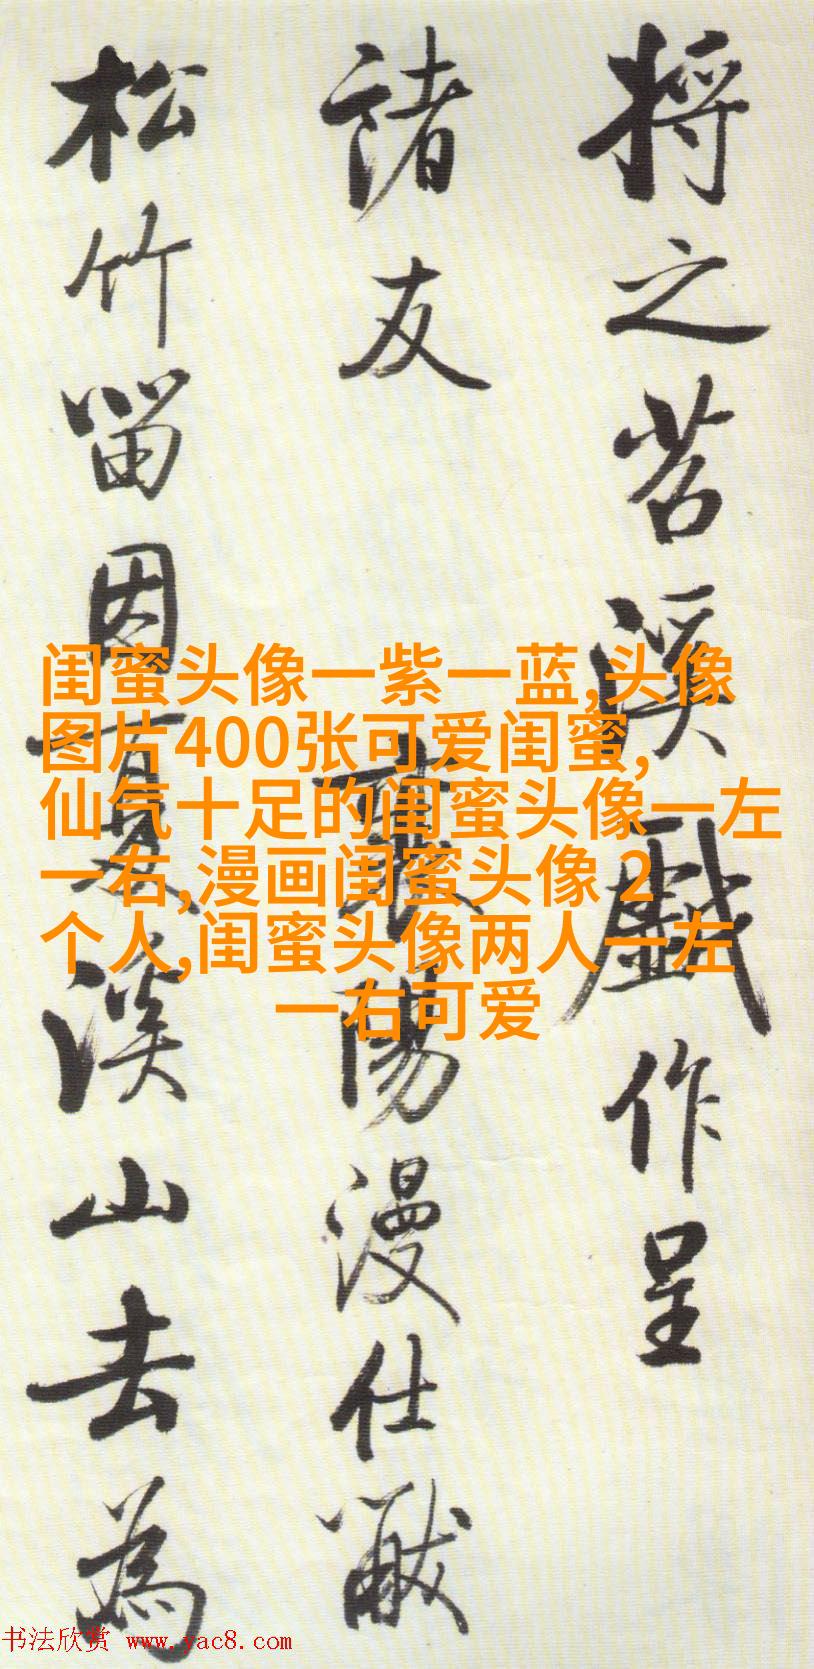 将之苕溪戲作呈
諸友 襄陽漫仕黻
松竹留因夏溪山去為
闺蜜头像一紫一蓝,头像
图片400张可爱闺蜜,
仙气十足的闺蜜头像一左
一右,漫画闺蜜头像 2
个人,闺蜜头像两人一左
一右可爱
书法欣赏 www.yac8.com